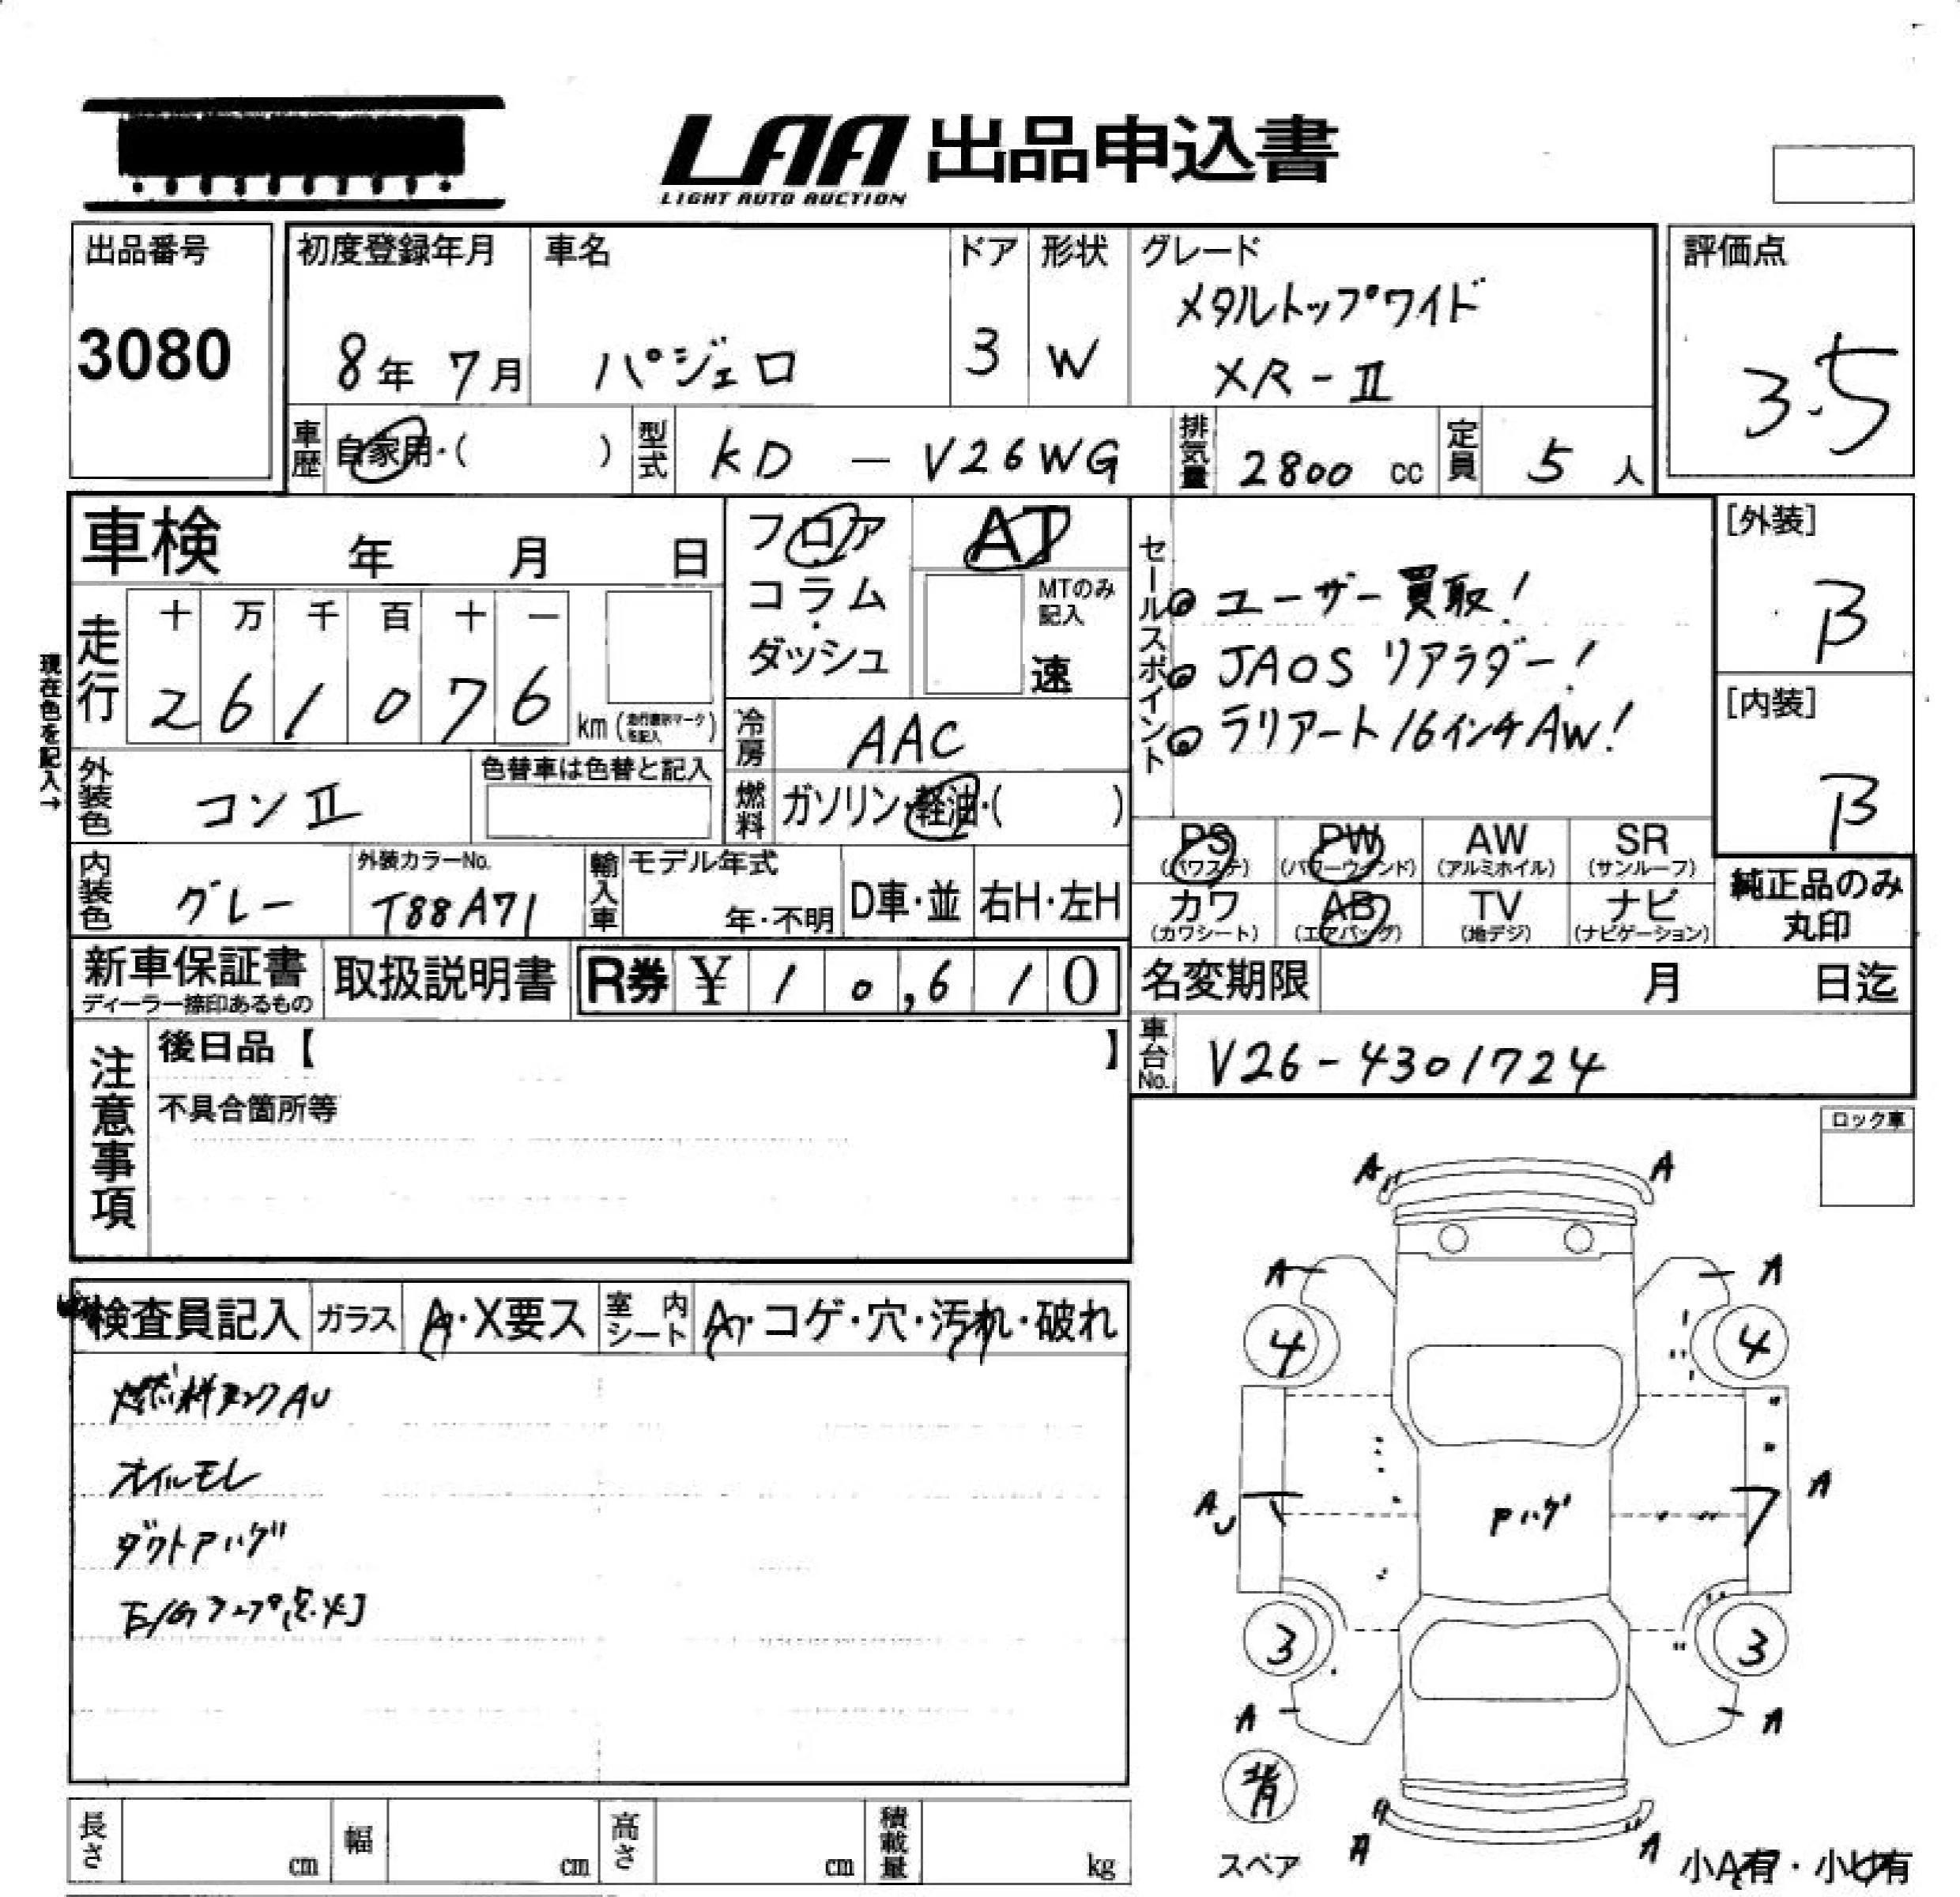 LAA 出品申込書
LIGHT AUTO AUCTION
出品番号
3080
初度登録年月
8年 7月
車名
パジェロ
ドア
3
形状
W
グレード
メタルトップワイド
XR-II
評価点
3.5
車歴 自家用・( )
型式 KD - V26WG
排気量 2800 cc
定員 5 人
車検 年 月 日
フロア
コラム
ダッシュ
AT
MTのみ
記入
速
現在色を記入→
走行
十 万 千 百 十 一
2 6 1 0 7 6 km
冷房 AAC
燃料 ガソリン・軽油・( )
外装色 コンII
色替車は色替と記入
内装色 グレー
外装カラーNo.
T88A71
輸入車
モデル年式
年・不明
D車・並
右H・左H
セールスポイント
◎ユーザー買取!
◎JAOSリアラダー!
◎ラリアート16インチAW!
[外装]
B
[内装]
B
PS
(パワステ)
PW
(パワーウィンド)
AW
(アルミホイル)
SR
(サンルーフ)
カワ
(カワシート)
AB
(エアバッグ)
TV
(地デジ)
ナビ
(ナビゲーション)
純正品のみ
丸印
新車保証書
ディーラー捺印あるもの
取扱説明書
R券 ¥ 1 0,6 1 0
名変期限 月 日迄
車台No. V26-4301724
注意事項
後日品【 】
不具合箇所等
ロック車
検査員記入
ガラス A・X要ス
室内シート A・コゲ・穴・汚れ・破れ
燃料タンクAU
オイルモレ
ダウトアハゲ
E/Gランプ点灯
A A
A A
4 4
AU A
Pハゲ
3 3
A A
背
スペア
A A A
小A有・小U有
長さ cm
幅 cm
高さ cm
積載量 kg